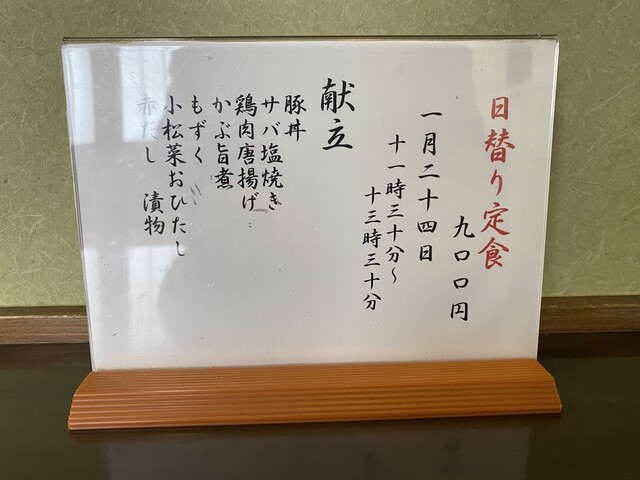 日替り定食
九〇〇円
一月二十四日
十一時三十分~
十三時三十分
献立
豚丼
サバ塩焼き
鶏肉唐揚げ
かぶ旨煮
もずく
小松菜おひたし
赤だし 漬物